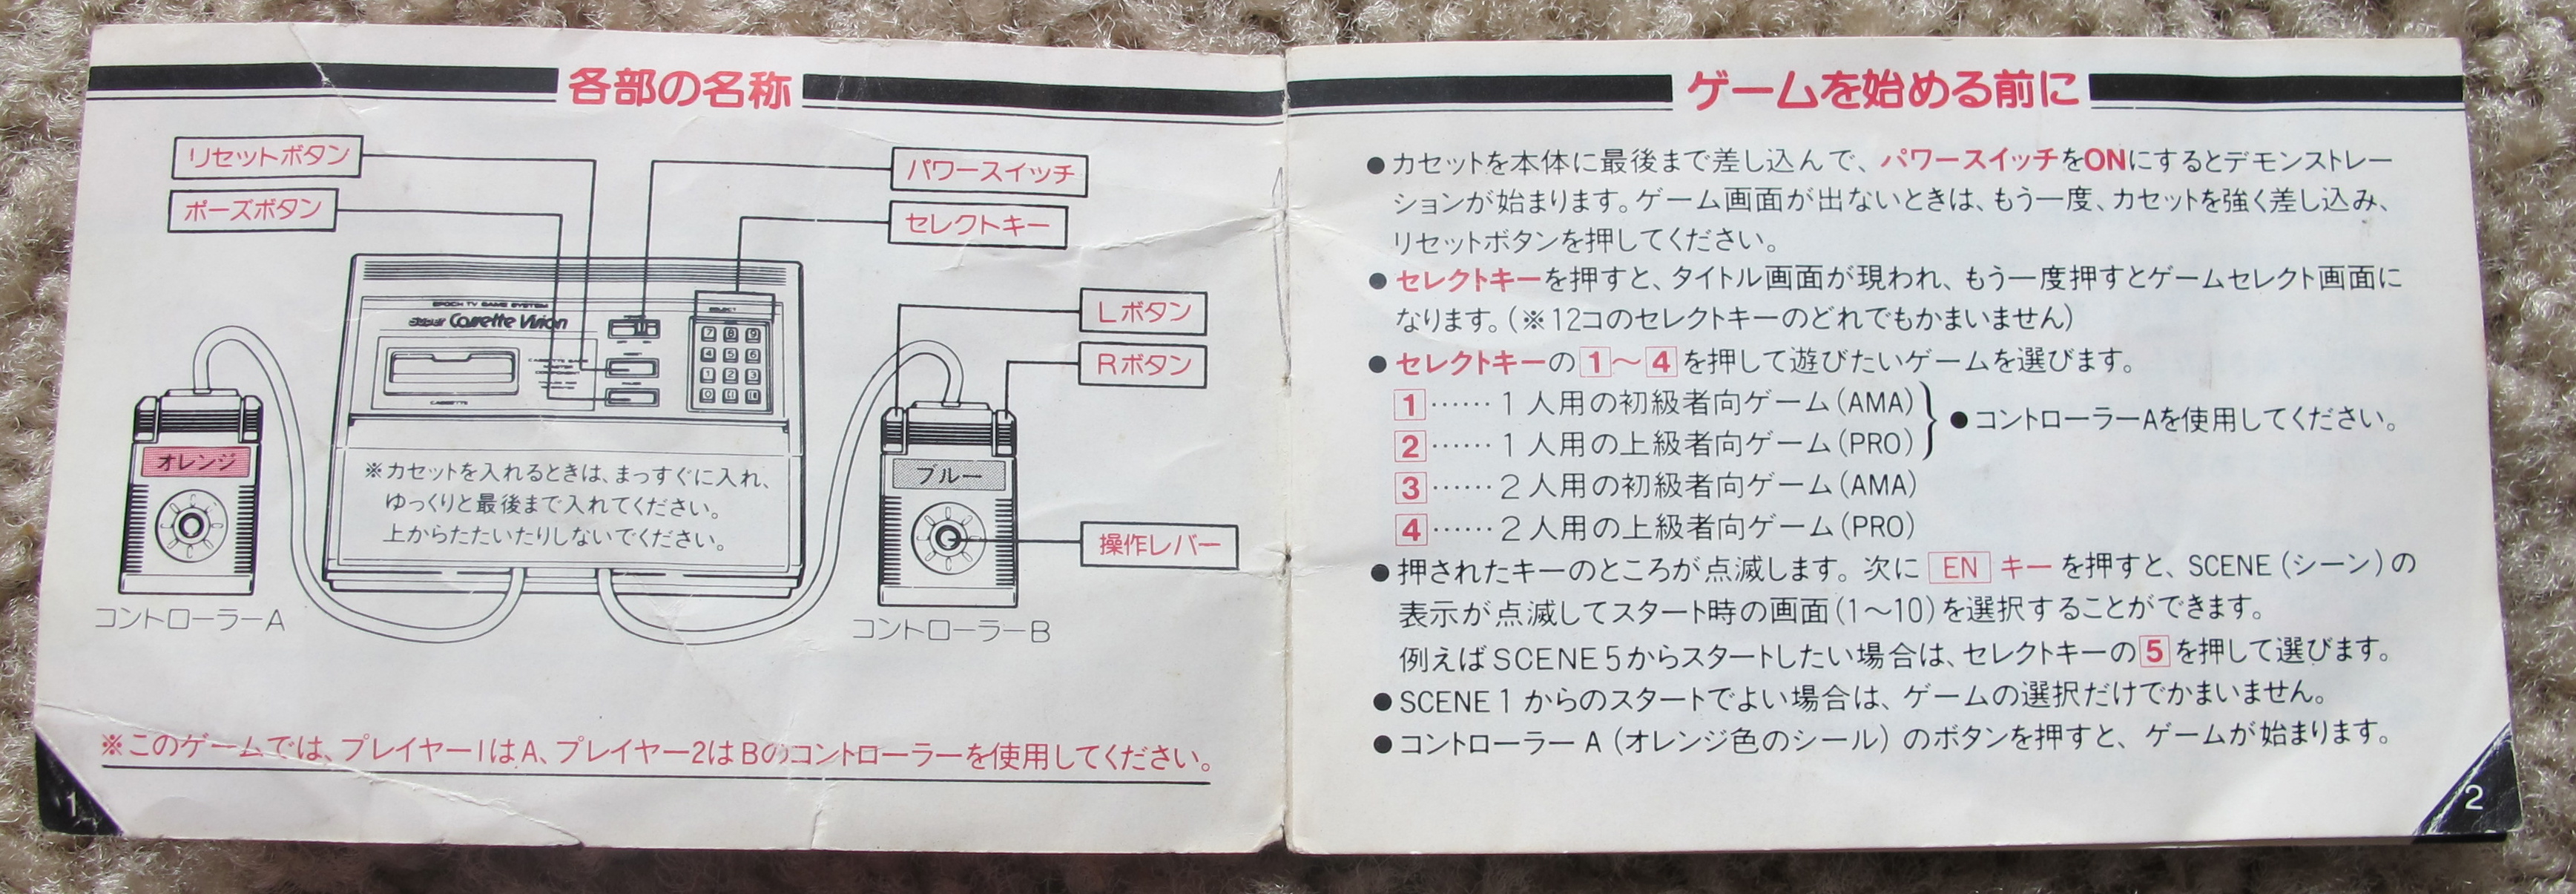 各部の名称
リセットボタン
ポーズボタン
パワースイッチ
セレクトキー
Lボタン
Rボタン
操作レバー
EPOCH TV GAME SYSTEM
Super Cassette Vision
SELECT
7 8 9
4 5 6
1 2 3
0
CASSETTE
オレンジ
ブルー
※カセットを入れるときは、まっすぐに入れ、
ゆっくりと最後まで入れてください。
上からたたいたりしないでください。
コントローラーA
コントローラーB
※このゲームでは、プレイヤー1はA、プレイヤー2はBのコントローラーを使用してください。
1
ゲームを始める前に
●カセットを本体に最後まで差し込んで、パワースイッチをONにするとデモンストレー
ションが始まります。ゲーム画面が出ないときは、もう一度、カセットを強く差し込み、
リセットボタンを押してください。
●セレクトキーを押すと、タイトル画面が現われ、もう一度押すとゲームセレクト画面に
なります。(※12コのセレクトキーのどれでもかまいません)
●セレクトキーの1〜4を押して遊びたいゲームを選びます。
1……1人用の初級者向ゲーム(AMA)
2……1人用の上級者向ゲーム(PRO)
●コントローラーAを使用してください。
3……2人用の初級者向ゲーム(AMA)
4……2人用の上級者向ゲーム(PRO)
●押されたキーのところが点滅します。次に EN キーを押すと、SCENE(シーン)の
表示が点滅してスタート時の画面(1〜10)を選択することができます。
例えばSCENE5からスタートしたい場合は、セレクトキーの5を押して選びます。
●SCENE1からのスタートでよい場合は、ゲームの選択だけでかまいません。
●コントローラーA(オレンジ色のシール)のボタンを押すと、ゲームが始まります。
2